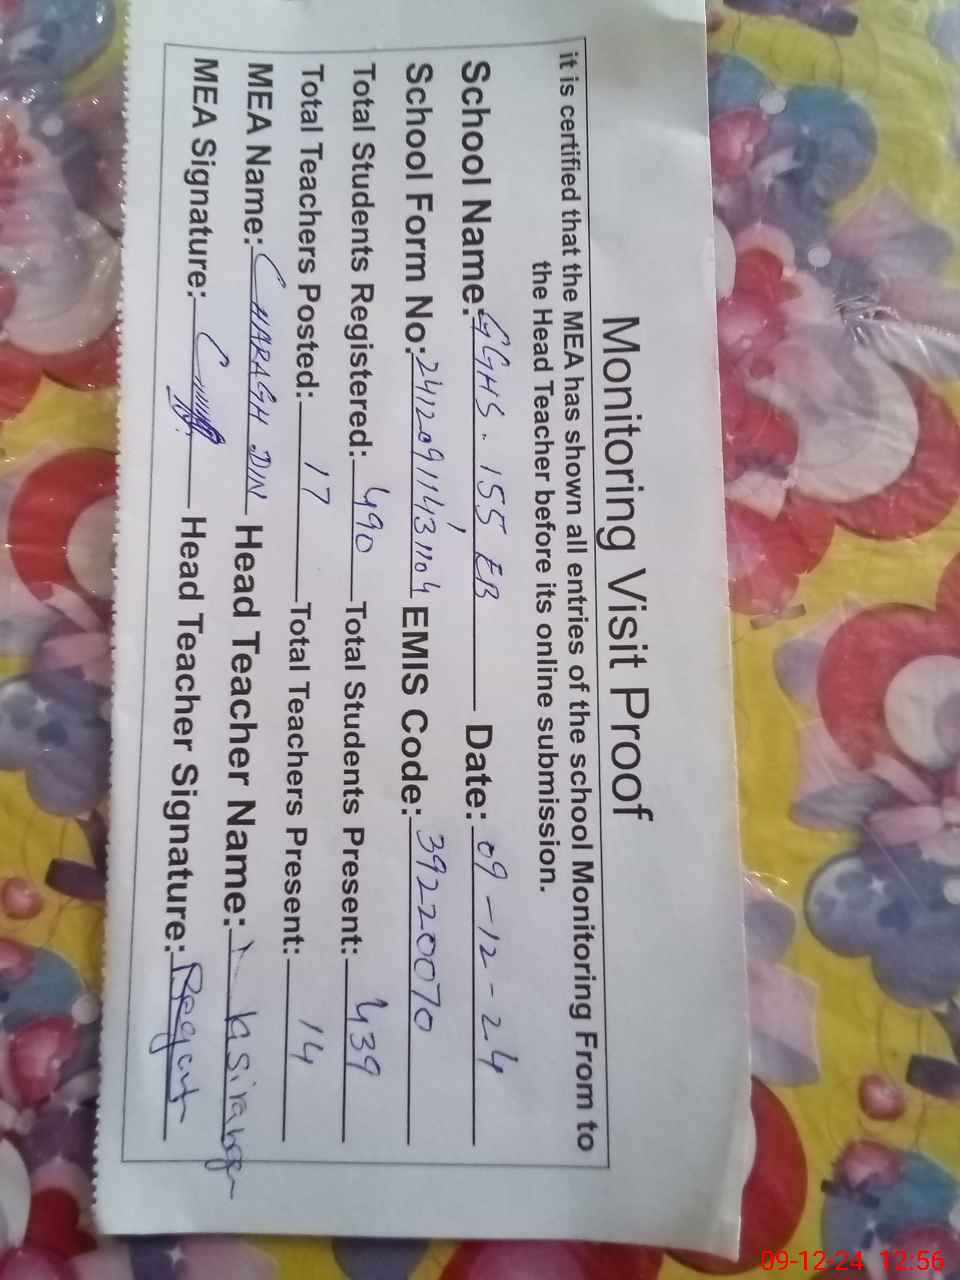 Monitoring Visit Proof
it is certified that the MEA has shown all entries of the school Monitoring From to
the Head Teacher before its online submission.
School Name: GGHS. 155 EB Date: 09-12-24
School Form No: 24120911431104 EMIS Code: 39220070
Total Students Registered: 490 Total Students Present: 439
Total Teachers Posted: 17 Total Teachers Present: 14
MEA Name: CHARAGH DIN Head Teacher Name:
MEA Signature: Head Teacher Signature:
09-12-24 12:56